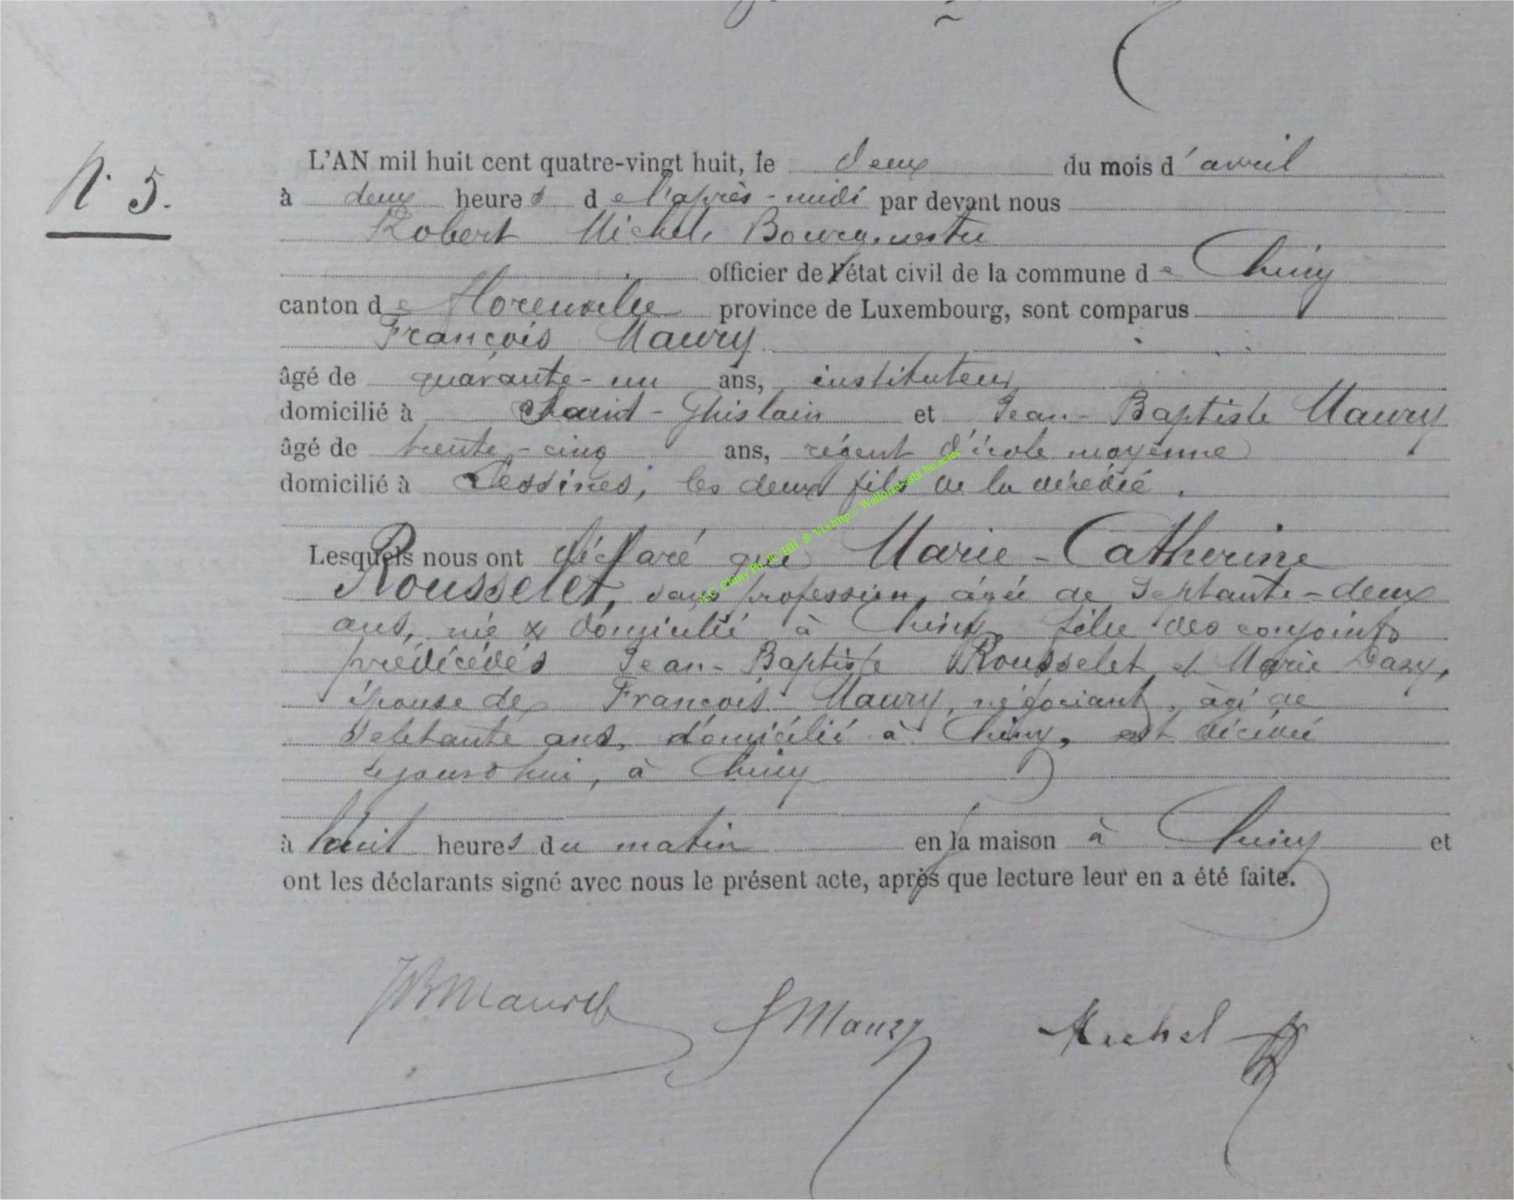 N. 5.
L'AN mil huit cent quatre-vingt huit, le deux du mois d'avril
à deux heures de l'après-midi par devant nous
Robert Michel, Bourgmestre
officier de l'état civil de la commune de Chiny
canton de Florenville province de Luxembourg, sont comparus
François Maury
âgé de quarante-un ans, instituteur
domicilié à Saint-Ghislain et Jean-Baptiste Maury
âgé de trente-cinq ans, régent d'école moyenne
domicilié à Lessines, les deux fils de la décédée.
Lesquels nous ont déclaré que Marie-Catherine
Rousselet, sans profession, âgée de septante-deux
ans, née & domiciliée à Chiny, fille des conjoints
prédécédés Jean-Baptiste Rousselet et Marie Dasy,
épouse de François Maury, négociant, âgé de
septante ans, domicilié à Chiny, est décédée
aujourd'hui, à Chiny
à huit heures du matin en la maison à Chiny et
ont les déclarants signé avec nous le présent acte, après que lecture leur en a été faite.
JB Maury F Maury Michel R